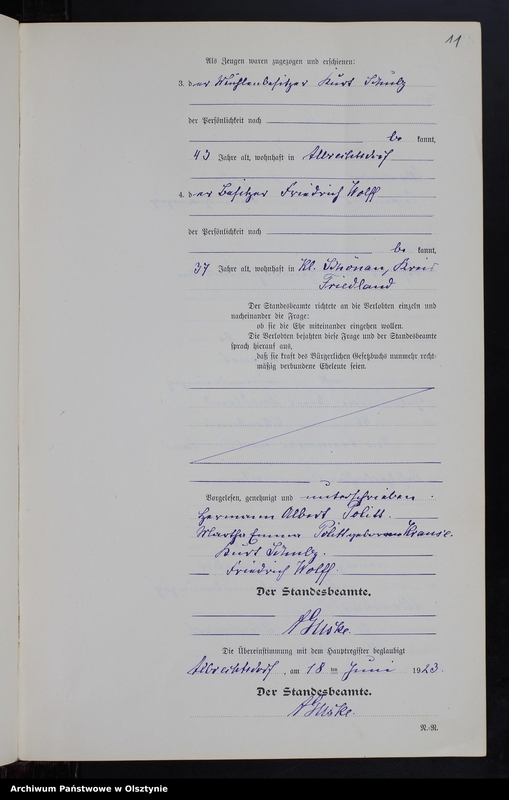 11
Als Zeugen waren zugezogen und erschienen:
3. der Mühlenbesitzer Kurt Schulz
der Persönlichkeit nach
be kannt,
43 Jahre alt, wohnhaft in Albrechtsdorf
4. der Besitzer Friedrich Wolff
der Persönlichkeit nach
be kannt,
37 Jahre alt, wohnhaft in Kl. Schönau, Kreis
Friedland
Der Standesbeamte richtete an die Verlobten einzeln und
nacheinander die Frage:
ob sie die Ehe miteinander eingehen wollen.
Die Verlobten bejahten diese Frage und der Standesbeamte
sprach hierauf aus,
daß sie kraft des Bürgerlichen Gesetzbuchs nunmehr recht-
mäßig verbundene Eheleute seien.
Vorgelesen, genehmigt und unterschrieben.
Hermann Albert Politt.
Martha Emma Politt geborene Krause.
Kurt Schulz.
Friedrich Wolff.
Der Standesbeamte.
Die Übereinstimmung mit dem Hauptregister beglaubigt
Albrechtsdorf, am 18 ten Juni 1923.
Der Standesbeamte.
N.-R.
Archiwum Państwowe w Olsztynie